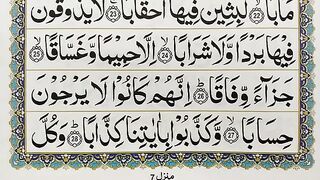 مَاٰبًا ﴿22﴾ لّٰبِثِيْنَ فِيْهَاۤ اَحْقَابًا ﴿23﴾ لَا يَذُوْقُوْنَ
فِيْهَا بَرْدًا وَّلَا شَرَابًا ﴿24﴾ اِلَّا حَمِيْمًا وَّغَسَّاقًا ﴿25﴾
جَزَآءً وِّفَاقًا ﴿26﴾ اِنَّهُمْ كَانُوْا لَا يَرْجُوْنَ
حِسَابًا ﴿27﴾ وَّكَذَّبُوْا بِاٰيٰتِنَا كِذَّابًا ﴿28﴾ وَكُلَّ
منزل ٧